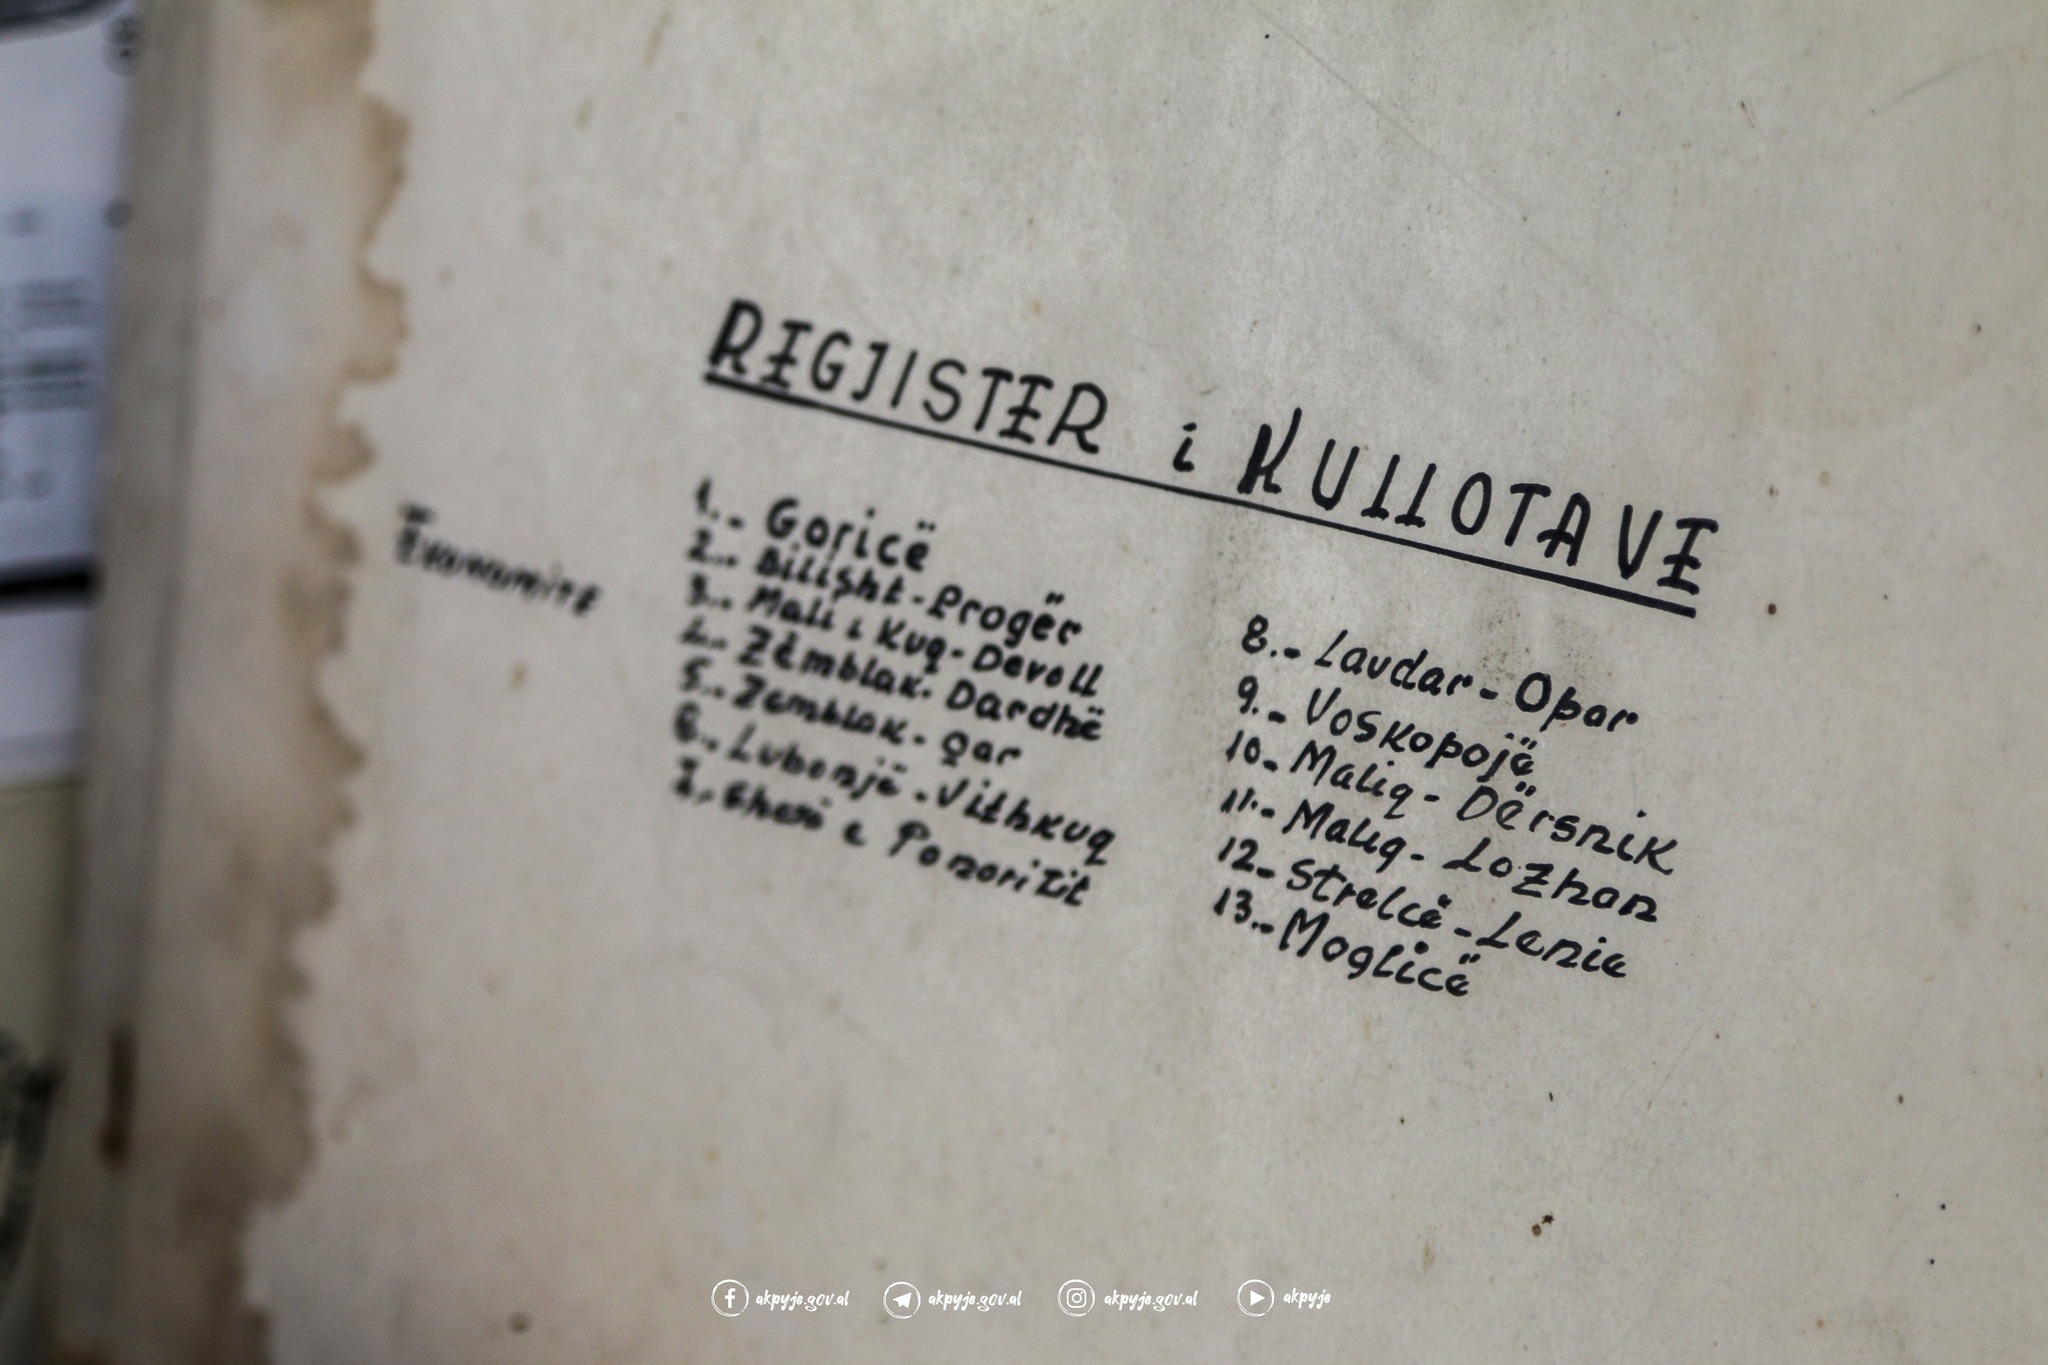 REGJISTER i KULLOTAVE
Ekonomitë
1.- Goricë
2.- Bilisht-Progër
3.- Mali i Kuq-Devoll
4.- Zëmblak-Dardhë
5.- Zemblak-Qar
6.- Lubonjë-Vithkuq
7.- e Panaritit
8.- Lavdar-Opar
9.- Voskopojë
10.- Maliq-Dërsnik
11.- Maliq-Lozhan
12.- Strelcë-Lenie
13.- Moglicë
akpyje.gov.al akpyje.gov.al akpyje.gov.al akpyje